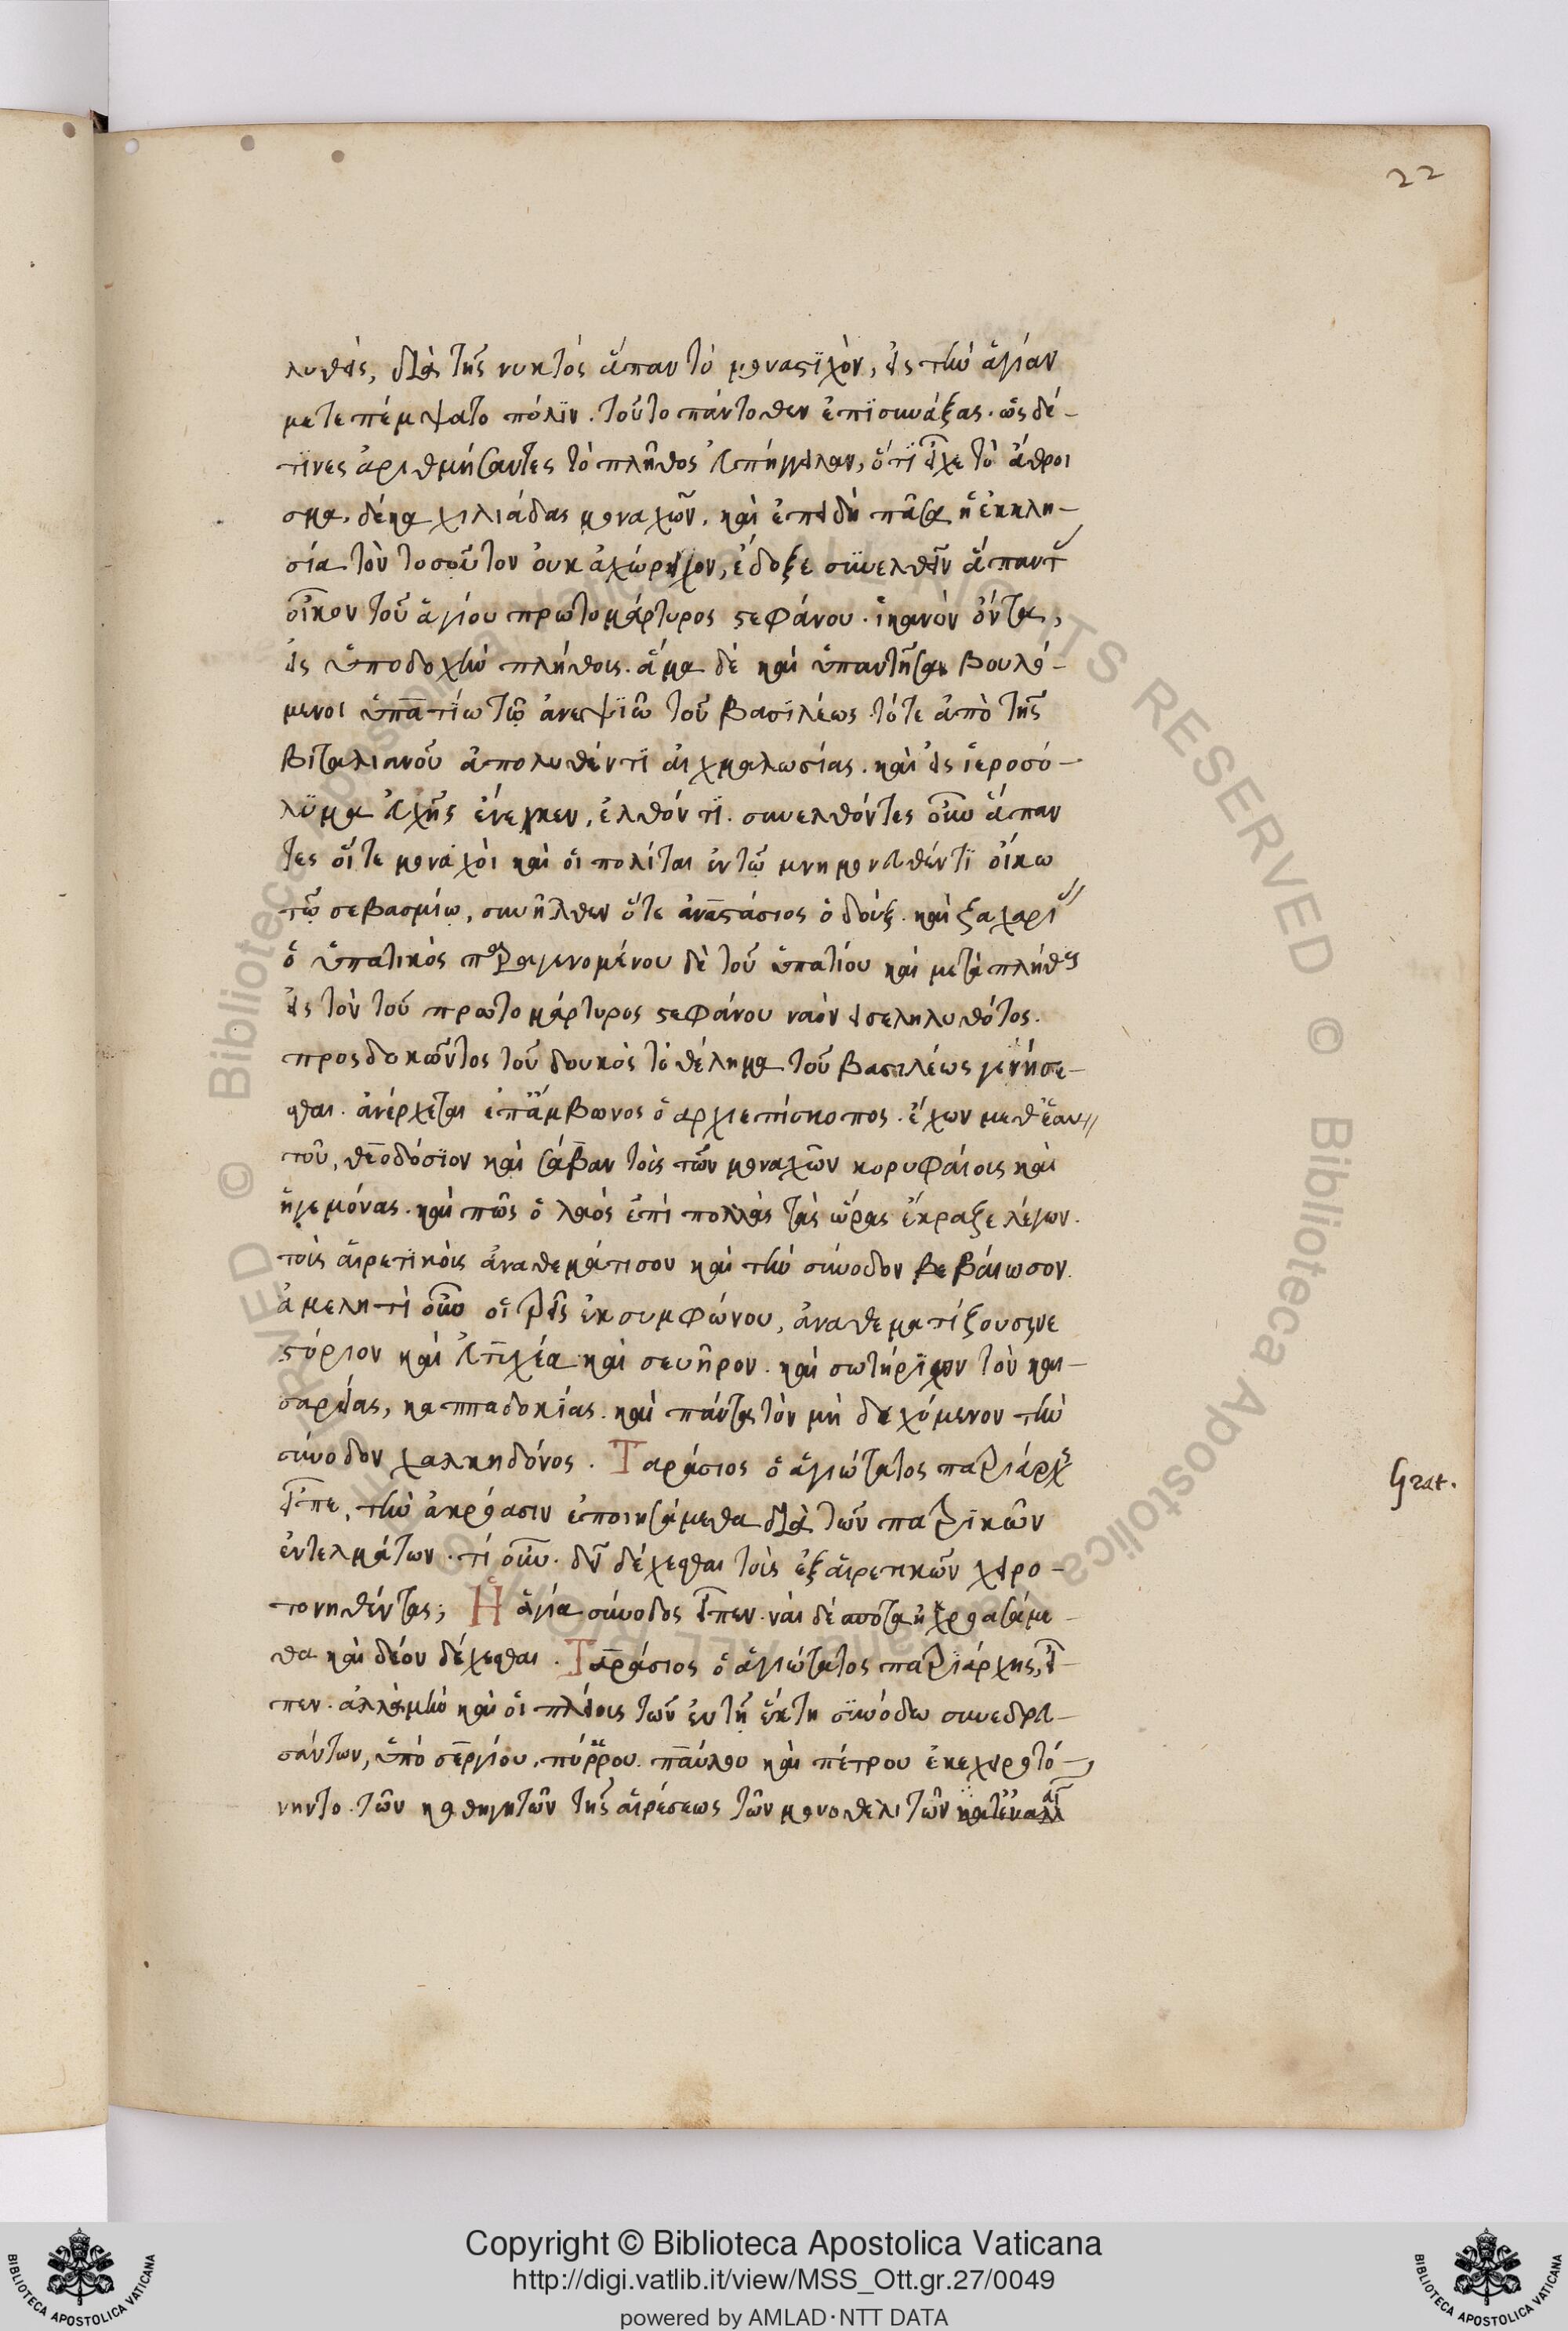 22
λυθεὶς, διὰ τῆς νυκτὸς ἅπαν τὸ μοναστϊχὸν, εἰς τὴν ἁγίαν
μετεπέμψατο πόλϊν. τοῦτο πάντοθεν ἐπϊσυνάξας. ὥς δέ-
τϊνες ἀριθμήσαντες τὸ πλῆθος ἀπήγγειλαν, ὅτϊ εἶχε τὸ ἄθροι
σμα. δέκα χιλιάδας μοναχῶν. καὶ ἐπειδὴ πᾶσα ἡ ἐκκλη-
σία τὸν τοσοῦτον οὐκ ἐχώρει ὄχλον, ἔδοξε συνελθεῖν ἅπαντ
οἶκον τοῦ ἁγίου πρωτομάρτυρος στεφάνου. ἱκανὸν ὄντα,
εἰς ὑποδοχὴν πλήθοις. ἅμα δὲ καὶ ὑπαντῆσαι βουλό-
μενοι ὑπατίω τῶ ἀνεψϊῶ τοῦ βασϊλέως. τότε ἀπὸ τῆς
βιταλιανοῦ ἀπολυθέντϊ αἰχμαλωσίας. καὶ εἰς ἱεροσό-
λϋμα εὐχῆς ἕνεγκεν, ἐλθόντϊ. συνελθόντες οὖν ἅπαν
τες οἵτε μοναχοὶ καὶ οἱ πολίται ἐν τῶ μνημονευθέντϊ οἴκω
τῶ σεβασμίω, συνῆλθεν ὅτε ἀναστάσιος ὁ δοὺξ. καὶ ζαχαρί
ὁ ὑπατικὸς παραγενομένου δὲ τοῦ ὑπατίου καὶ μετὰ πλήθους
εἰς τὸν τοῦ πρωτομάρτυρος στεφάνου ναὸν εἰσεληλυθότος.
προσδοκῶντος τοῦ δουκὸς τὸ θέλημα τοῦ βασιλέως γενήσε-
σθαι. ἀνέρχεται ἐπἄμβωνος ὁ αρχιεπίσκοπος. ἔχων μεθ ἑαυ
τοῦ, θεοδόσϊον καὶ σάβαν τοὶς τῶν μοναχῶν κορυφαίοις καὶ
ἡγεμόνας. καὶ πῶς ὁ λαὸς ἐπὶ πολλὰς τὰς ὥρας ἔκραξε λέγων.
τοὶς αἱρετϊκοὶς ἀναθεμάτισον καὶ τὴν σύνοδον βεβαίωσον.
ἀμελητὶ οὖν οἱ τρεῖς ἐκ συμφώνου, ἀναθεματίζουσι νε
στόριον καὶ εὐτϊχέα καὶ σευῆρον. καὶ σωτήρϊχον τὸν και-
σαρείας, καππαδοκίας. καὶ πάντα τὸν μὴ δεχόμενον τὴν
σύνοδον χαλκηδόνος. Ταράσιος ὁ ἁγιώτατος πατριάρχης
εἶπε, τὴν ἀκρόασιν ἐποιησάμεθα διὰ τῶν πατρϊκῶν
ἐντελμάτων. τί οὖν. δεῖ δέχεσθαι τοὶς ἐξ αἱρετικῶν χειρο-
τονηθέντας; Ἡ ἁγία σύνοδος εἶπεν. ναὶ δέσποτα ἠκροασάμε-
θα καὶ δέον δέχεσθαι. Ταράσιος ὁ ἁγιώτατος πατριάρχης, εἶ-
πεν. ἀλλὰ μὴν καὶ οἱ πλείοις τῶν ἐν τῆ ἕκτη σϋνόδω συνεδρευ-
σάντων, ὑπὸ σεργίου. πύρρου. παύλου καὶ πέτρου ἐκεχειροτό-
νηντο. τῶν καθηγητῶν τῆς αἱρέσεως τῶν μονοθελιτῶν
Grat.
Copyright © Biblioteca Apostolica Vaticana
http://digi.vatlib.it/view/MSS_Ott.gr.27/0049
powered by AMLAD·NTT DATA